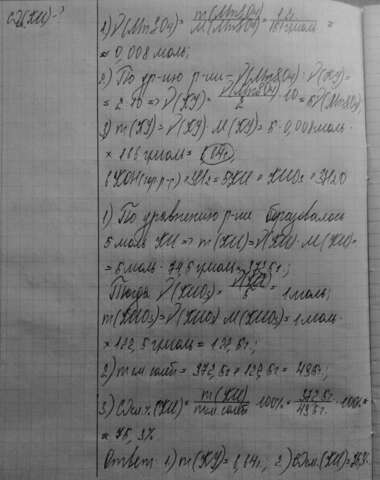 ω(KCl)-?
1) ν(MnSO4) = m(MnSO4) / M(MnSO4) = 1,2г / 151 г/моль =
= 0,008 моль;
2) По ур-ию р-ии ν(MnSO4) : ν(KI) =
= 2 : 10 => ν(KI) = ν(MnSO4) / 2 · 10 = 5ν(MnSO4)
3) m(KI) = ν(KI) · M(KI) = 5 · 0,008 моль ·
× 166 г/моль = 6,64г.
6KOH(гор. р-р) + 3Cl2 = 5KCl + KClO3 + 3H2O
1) По уравнению р-ии образовалось
5 моль KCl => m(KCl) = ν(KCl) · M(KCl) =
= 5 моль · 74,5 г/моль = 372,5г;
Тогда ν(KClO3) = ν(KCl) / 5 = 1 моль;
m(KClO3) = ν(KClO3) · M(KClO3) = 1 моль ·
× 122,5 г/моль = 122,5г;
2) m см. солей = 372,5г + 122,5г = 495г;
3) ω (KCl) = m(KCl) / m см. солей · 100% = 372,5г / 495г · 100% =
= 75,3%
Ответ: 1) m(KI) = 6,64г.; 2) ω (KCl) = 75,3%